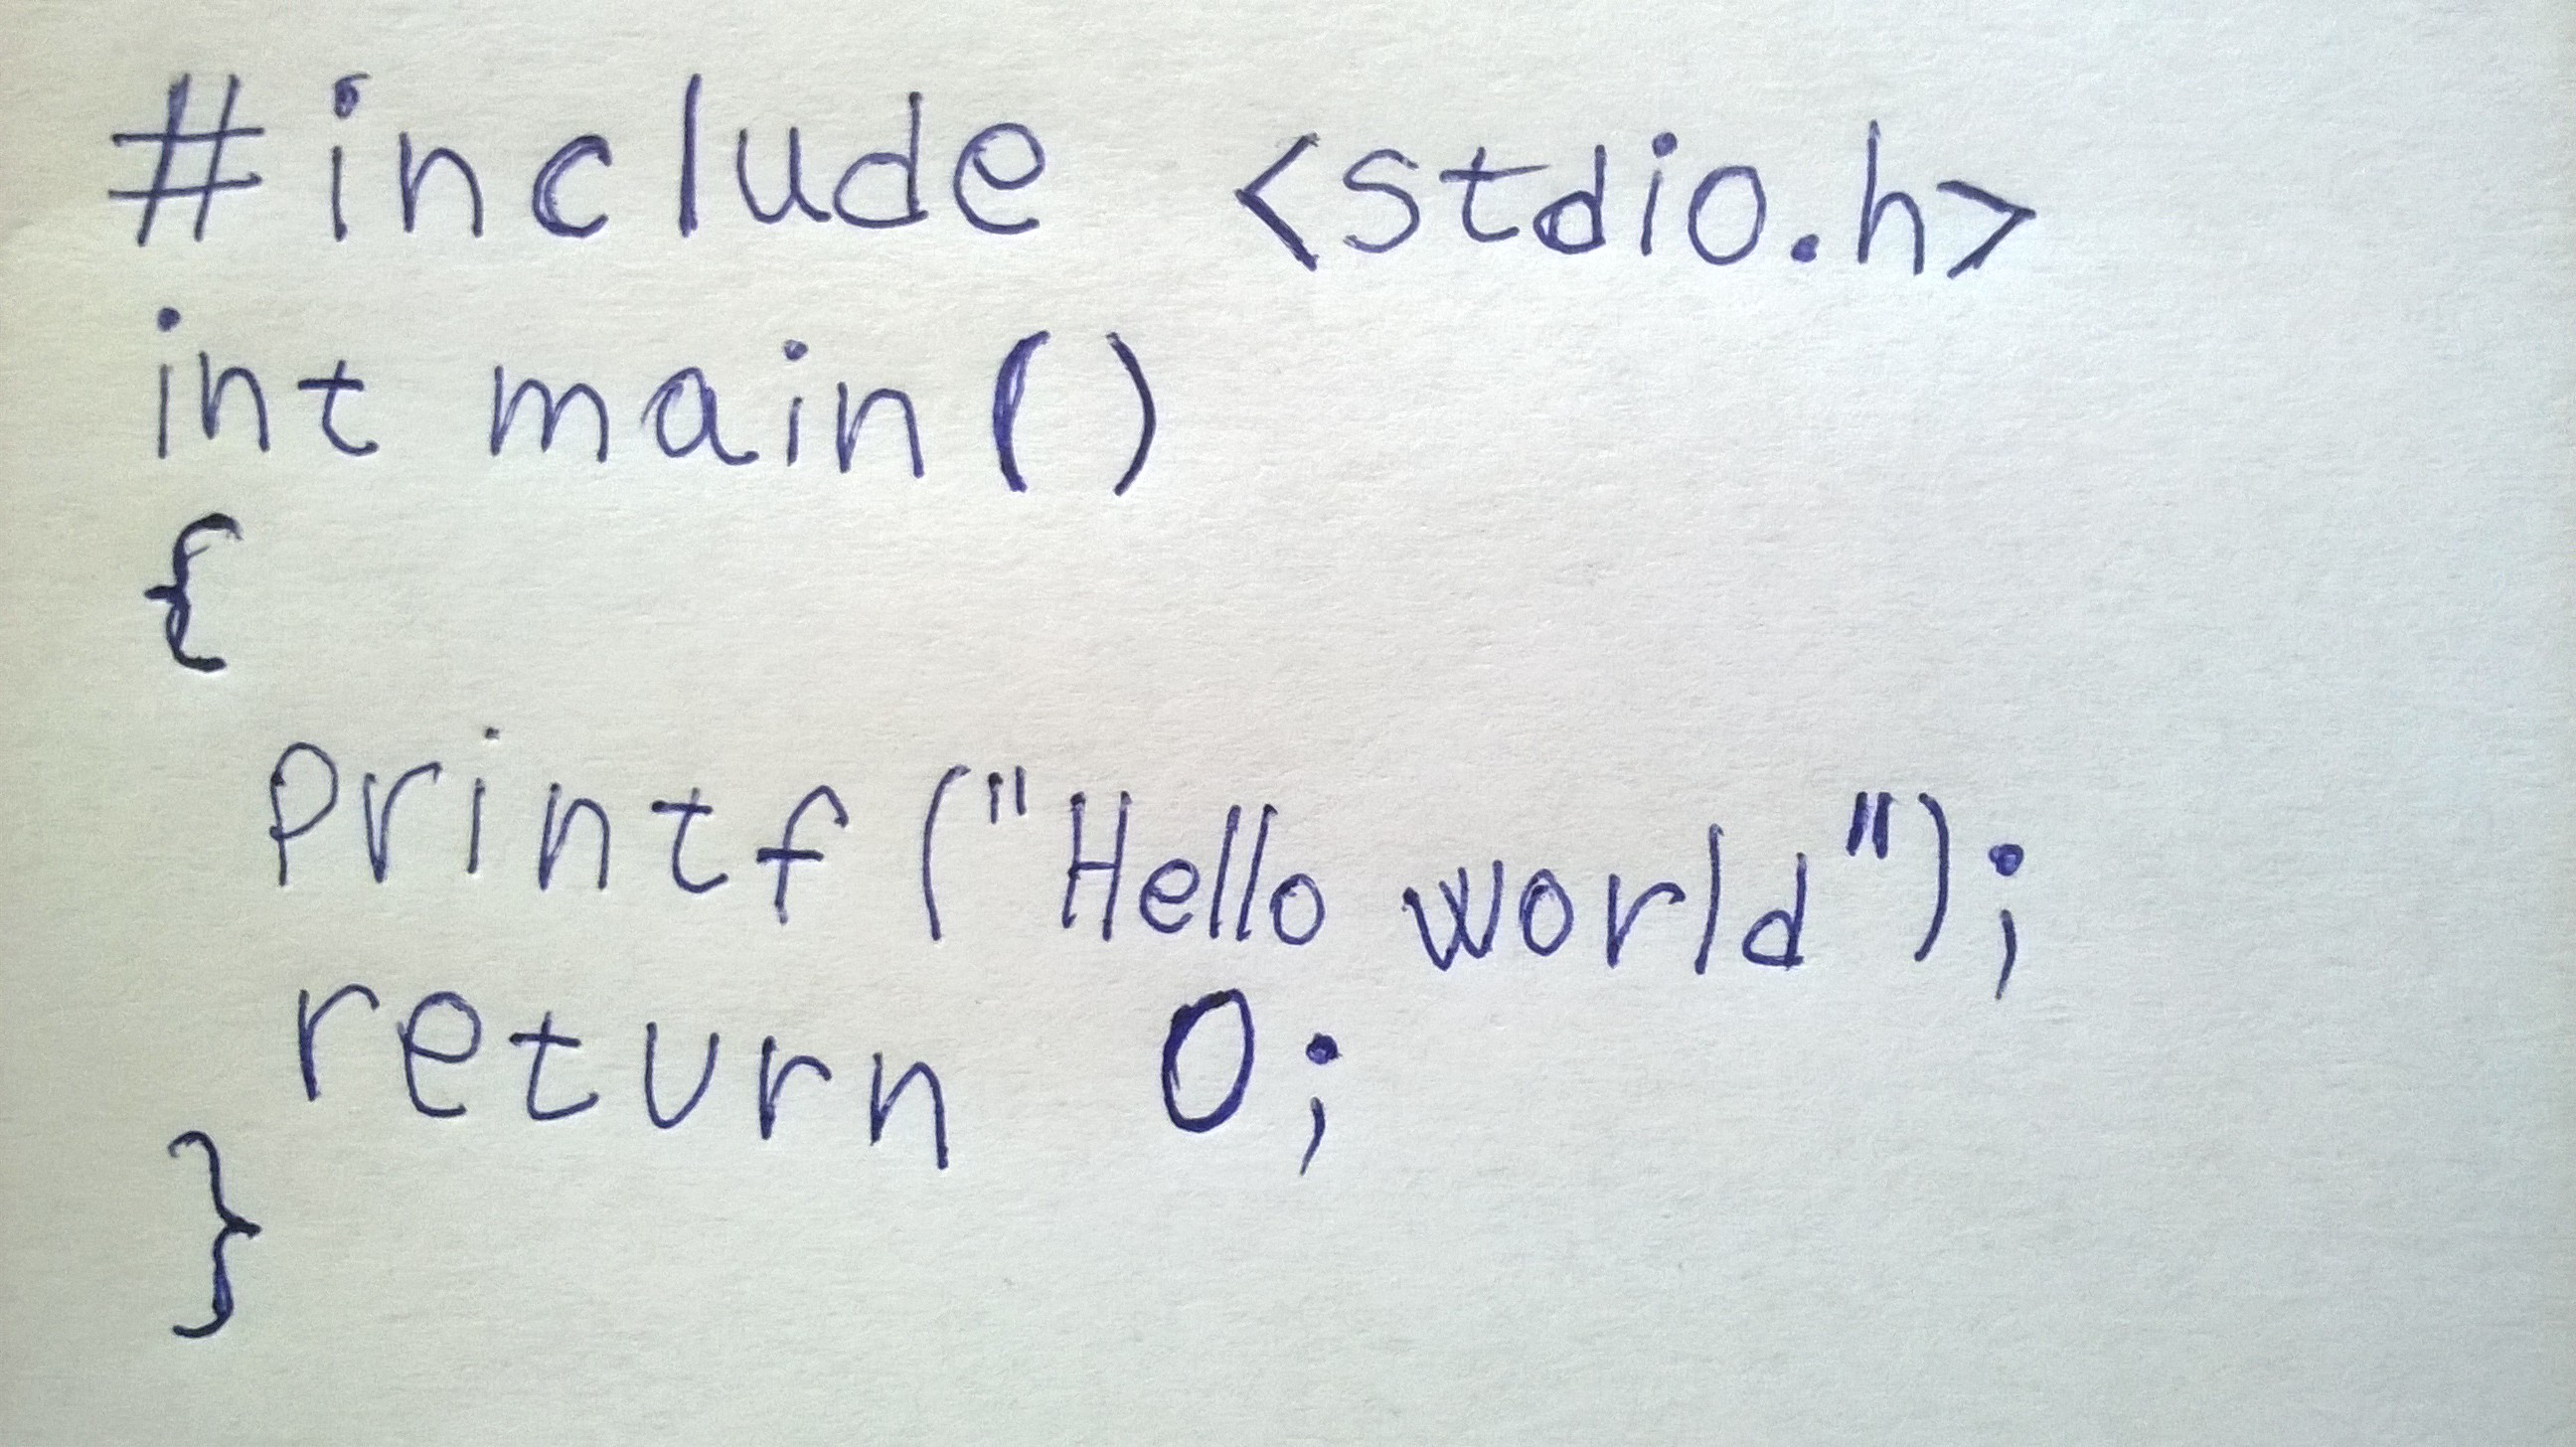 #include <stdio.h>
int main()
{
printf("Hello world");
return 0;
}